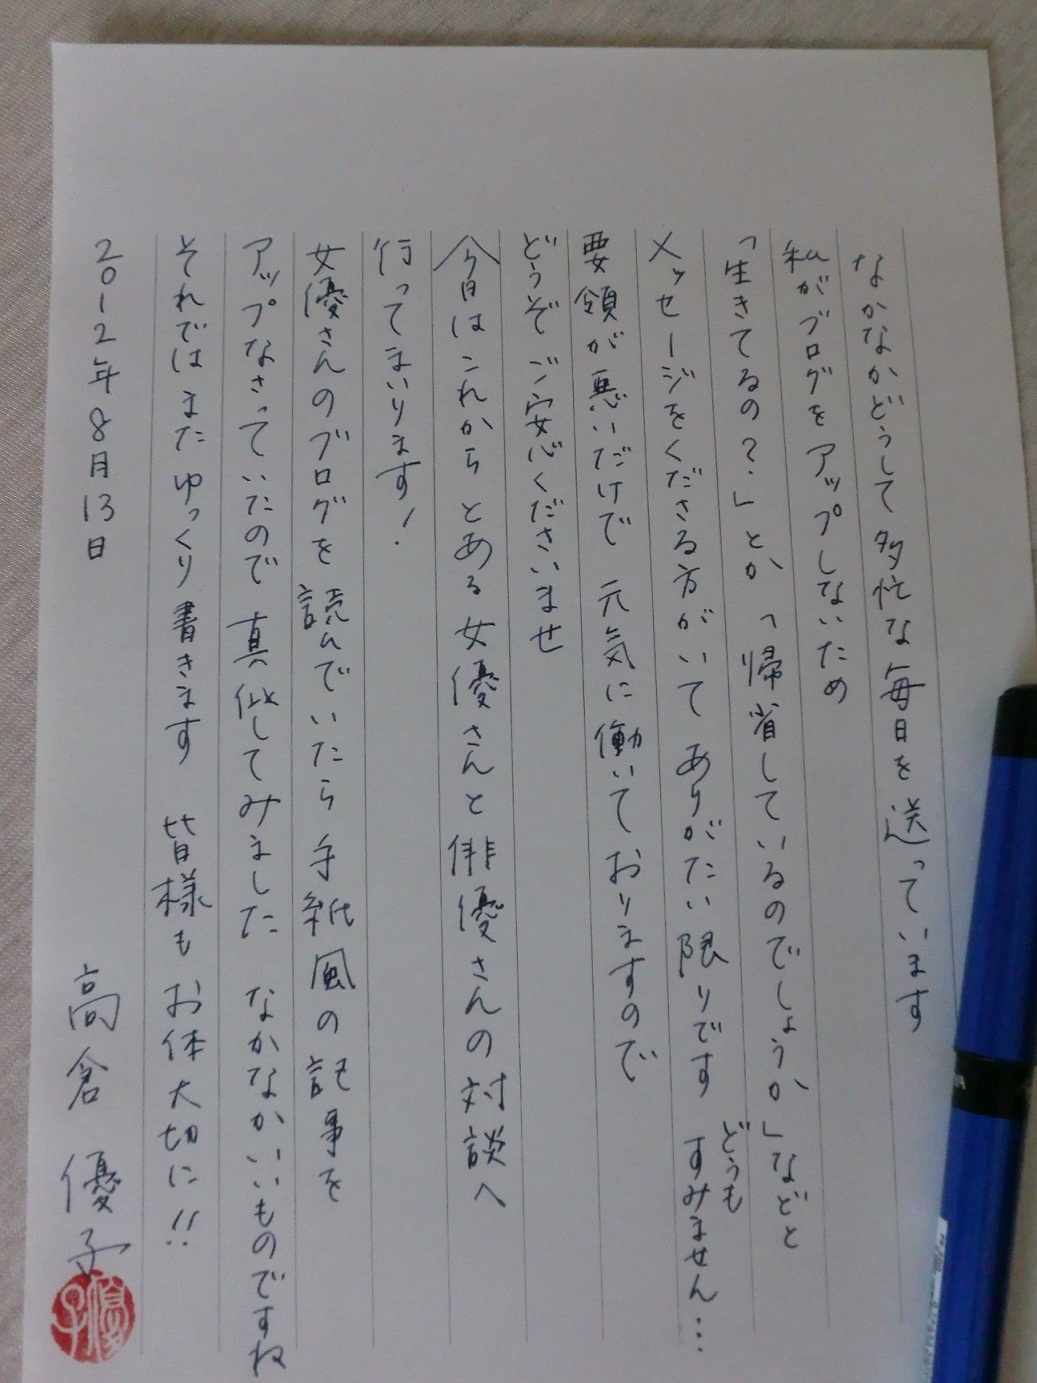 なかなかどうして多忙な毎日を送っています
私がブログをアップしないため
「生きてるの?」とか、「帰省しているのでしょうか」などと
メッセージをくださる方がいて ありがたい限りです どうも すみません…
要領が悪いだけで 元気に働いておりますので
どうぞ ご安心くださいませ
今日はこれから とある女優さんと俳優さんの対談へ
行ってまいります!
女優さんのブログを読んでいたら手紙風の記事を
アップなさっていたので 真似してみました なかなかいいものですね
それでは また ゆっくり書きます 皆様も お体大切に!!
2012年8月13日
高倉 優子
優子